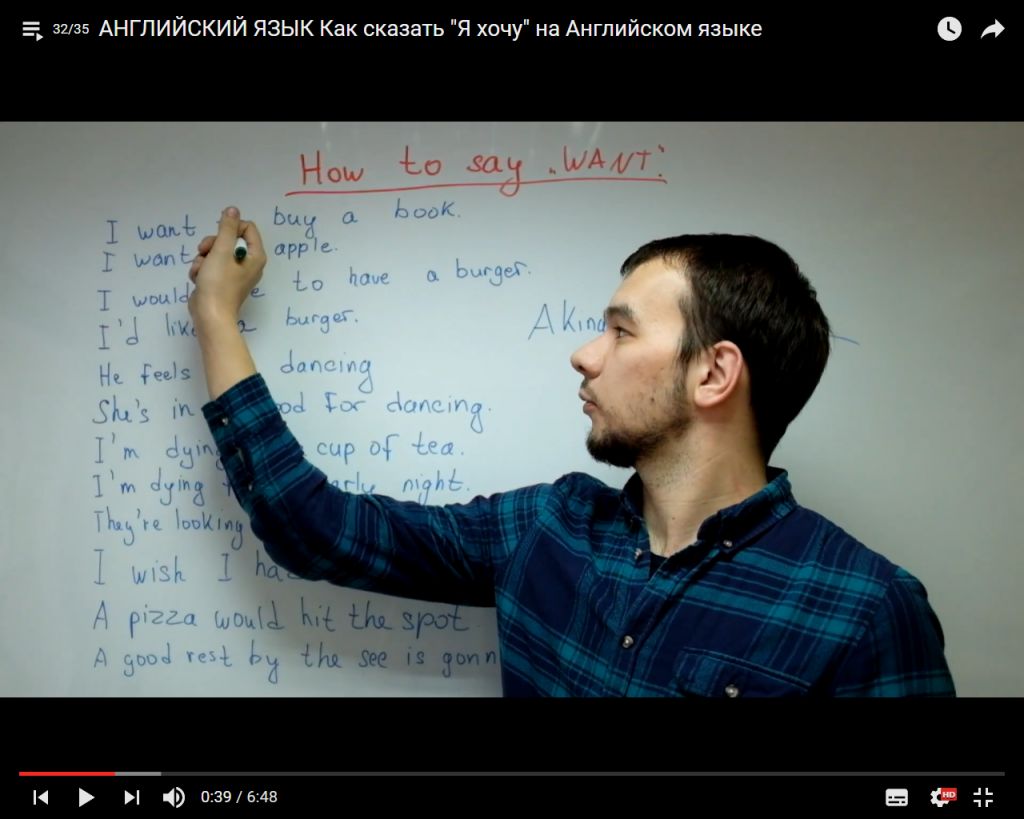 32/35 АНГЛИЙСКИЙ ЯЗЫК Как сказать "Я хочу" на Английском языке
How to say "WANT".
I want buy a book.
I want apple.
I would to have a burger.
I'd like a burger.
He feels dancing
She's in for dancing.
I'm dying cup of tea.
I'm dying night.
They're looking
I wish I
A pizza would hit the spot
A good rest by the see is
0:39 / 6:48
HD